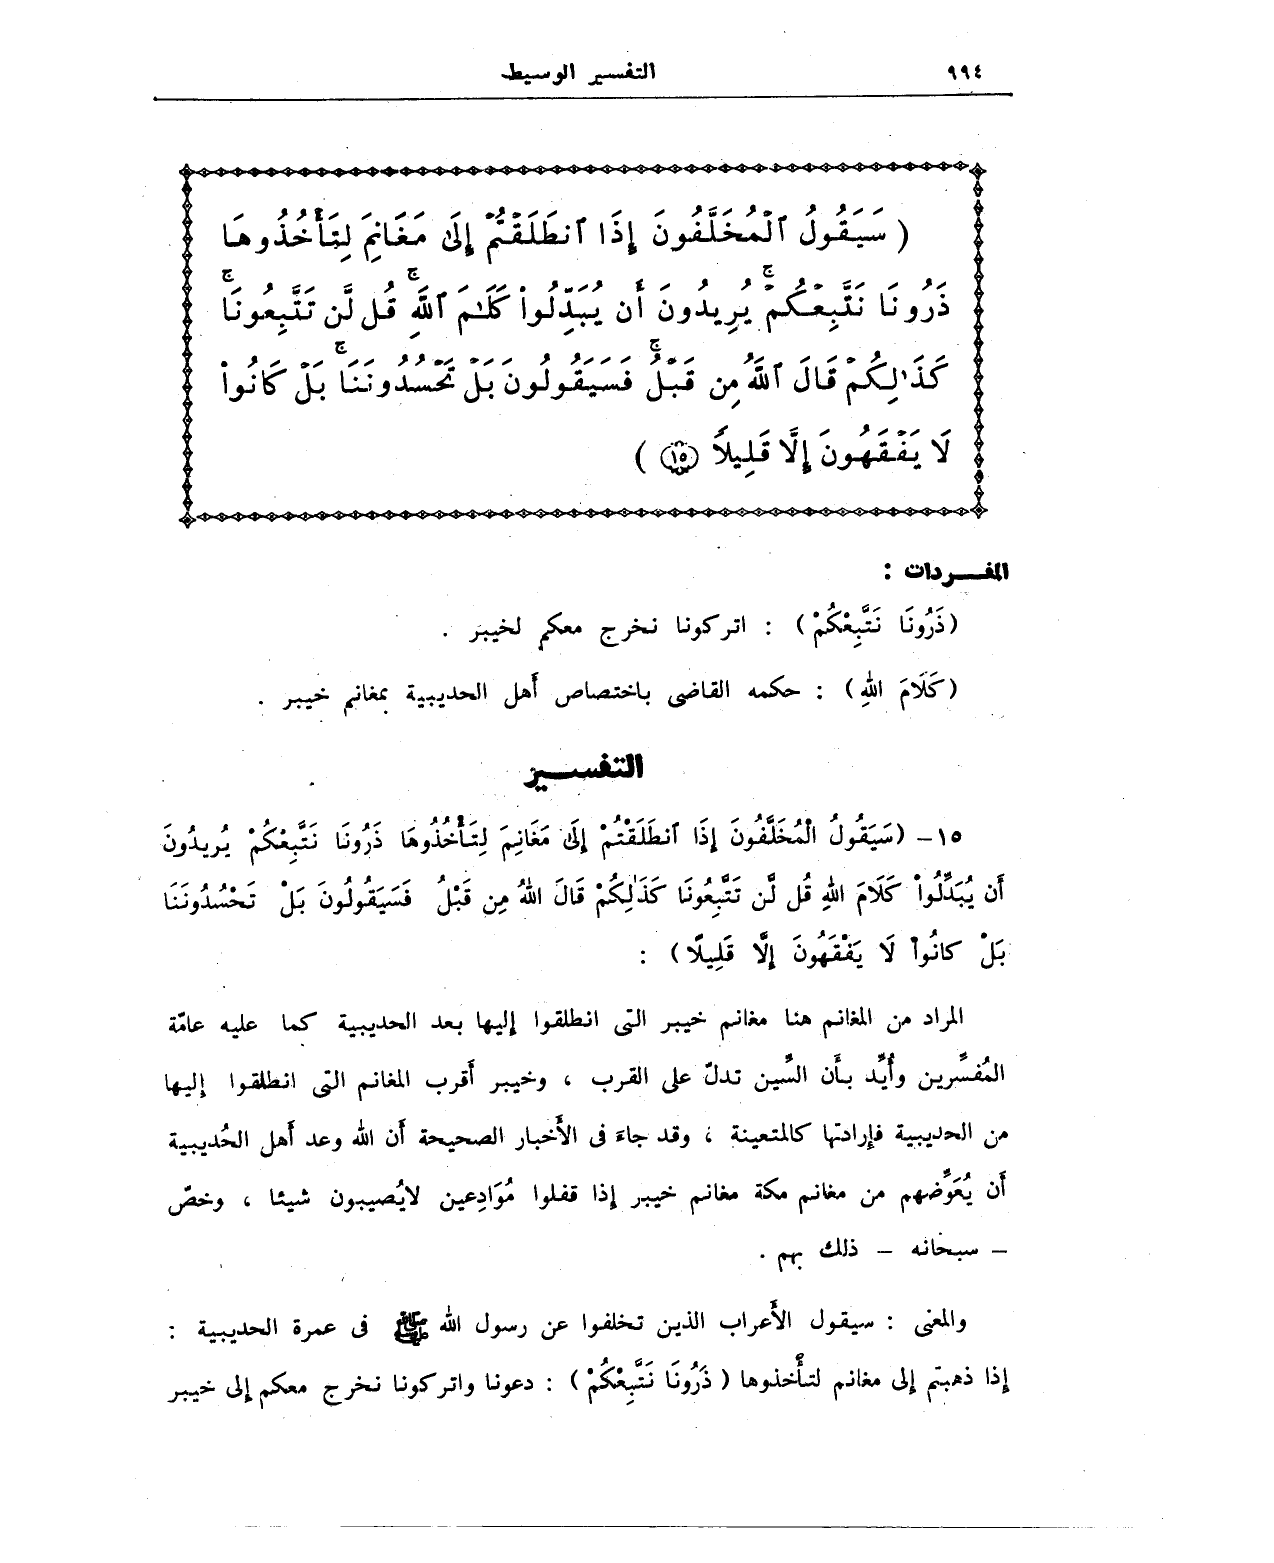 ٩٩٤
التفسير الوسيط
( سَيَقُولُ ٱلْمُخَلَّفُونَ إِذَا ٱنطَلَقْتُمْ إِلَىٰ مَغَانِمَ لِتَأْخُذُوهَا
ذَرُونَا نَتَّبِعْكُمْ ۖ يُرِيدُونَ أَن يُبَدِّلُوا۟ كَلَـٰمَ ٱللَّهِ ۚ قُل لَّن تَتَّبِعُونَا ۚ
كَذَٰلِكُمْ قَالَ ٱللَّهُ مِن قَبْلُ ۖ فَسَيَقُولُونَ بَلْ تَحْسُدُونَنَا ۚ بَلْ كَانُوا۟
لَا يَفْقَهُونَ إِلَّا قَلِيلًا ١٥ )
المفـــردات :
(ذَرُونَا نَتَّبِعْكُمْ) : اتركونا نخرج معكم لخيبر .
(كَلَامَ اللهِ) : حكمه القاضى باختصاص أهل الحديبية بمغانم خيبر .
التفســـير
١٥- (سَيَقُولُ الْمُخَلَّفُونَ إِذَا ٱنطَلَقْتُمْ إِلَىٰ مَغَانِمَ لِتَأْخُذُوهَا ذَرُونَا نَتَّبِعْكُمْ يُرِيدُونَ
أَن يُبَدِّلُوا۟ كَلَامَ اللهِ قُل لَّن تَتَّبِعُونَا كَذَٰلِكُمْ قَالَ اللهُ مِن قَبْلُ فَسَيَقُولُونَ بَلْ تَحْسُدُونَنَا
بَلْ كانُوا۟ لَا يَفْقَهُونَ إِلَّا قَلِيلًا) :
المراد من المغانم هنا مغانم خيبر التى انطلقوا إليها بعد الحديبية كما عليه عامّة
المُفسِّرين وأُيِّد بأن السِّين تدلّ على القرب ، وخيبر أقرب المغانم التى انطلقوا إليها
من الحديبية فإرادتها كالمتعينة ، وقد جاءَ فى الأَخبار الصحيحة أن الله وعد أهل الحُديبية
أَن يُعَوِّضهم من مغانم مكة مغانم خيبر إذا قفلوا مُوَادِعين لايُصيبون شيئا ، وخصّ
– سبحانه – ذلك بهم .
والمعنى : سيقول الأَعراب الذين تخلفوا عن رسول الله ﷺ فى عمرة الحديبية :
إذا ذهبتم إلى مغانم لتأْخذوها ( ذَرُونَا نَتَّبِعْكُمْ ) : دعونا واتركونا نخرج معكم إلى خيبر